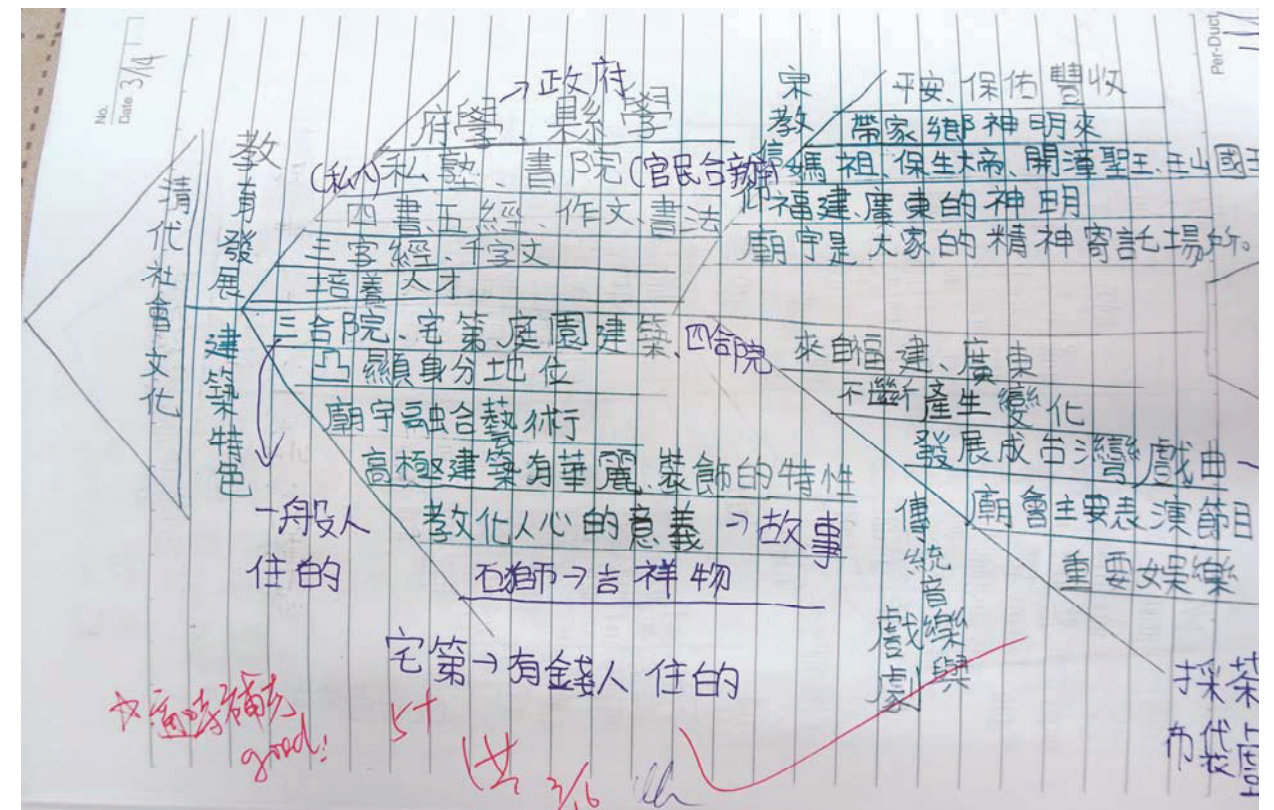 No.
Date 3/14
Per-Duct
清代社會文化
教育發展
府學、縣學→政府
(私人)私塾、書院(官民合辦)
四書五經、作文、書法
三字經、千字文
培養人才
建築特色
三合院、宅第庭園建築、四合院
凸顯身分地位
廟宇融合藝術行
高極建築有華麗、裝飾的特性
教化人心的意義→故事
石獅→吉祥物
一般人
住的
宅第→有錢人住的
宗教信仰
平安、保佑豐收
帶家鄉神明來
媽祖、保生大帝、開漳聖王、三山國王
福建、廣東的神明
廟宇是大家的精神寄託場所。
傳統音樂與
戲劇
來自福建、廣東
不斷產生變化
發展成台灣戲曲
廟會主要表演節目
重要娛樂
採茶
布袋戲
☆適時補充
good!
5+
3/16